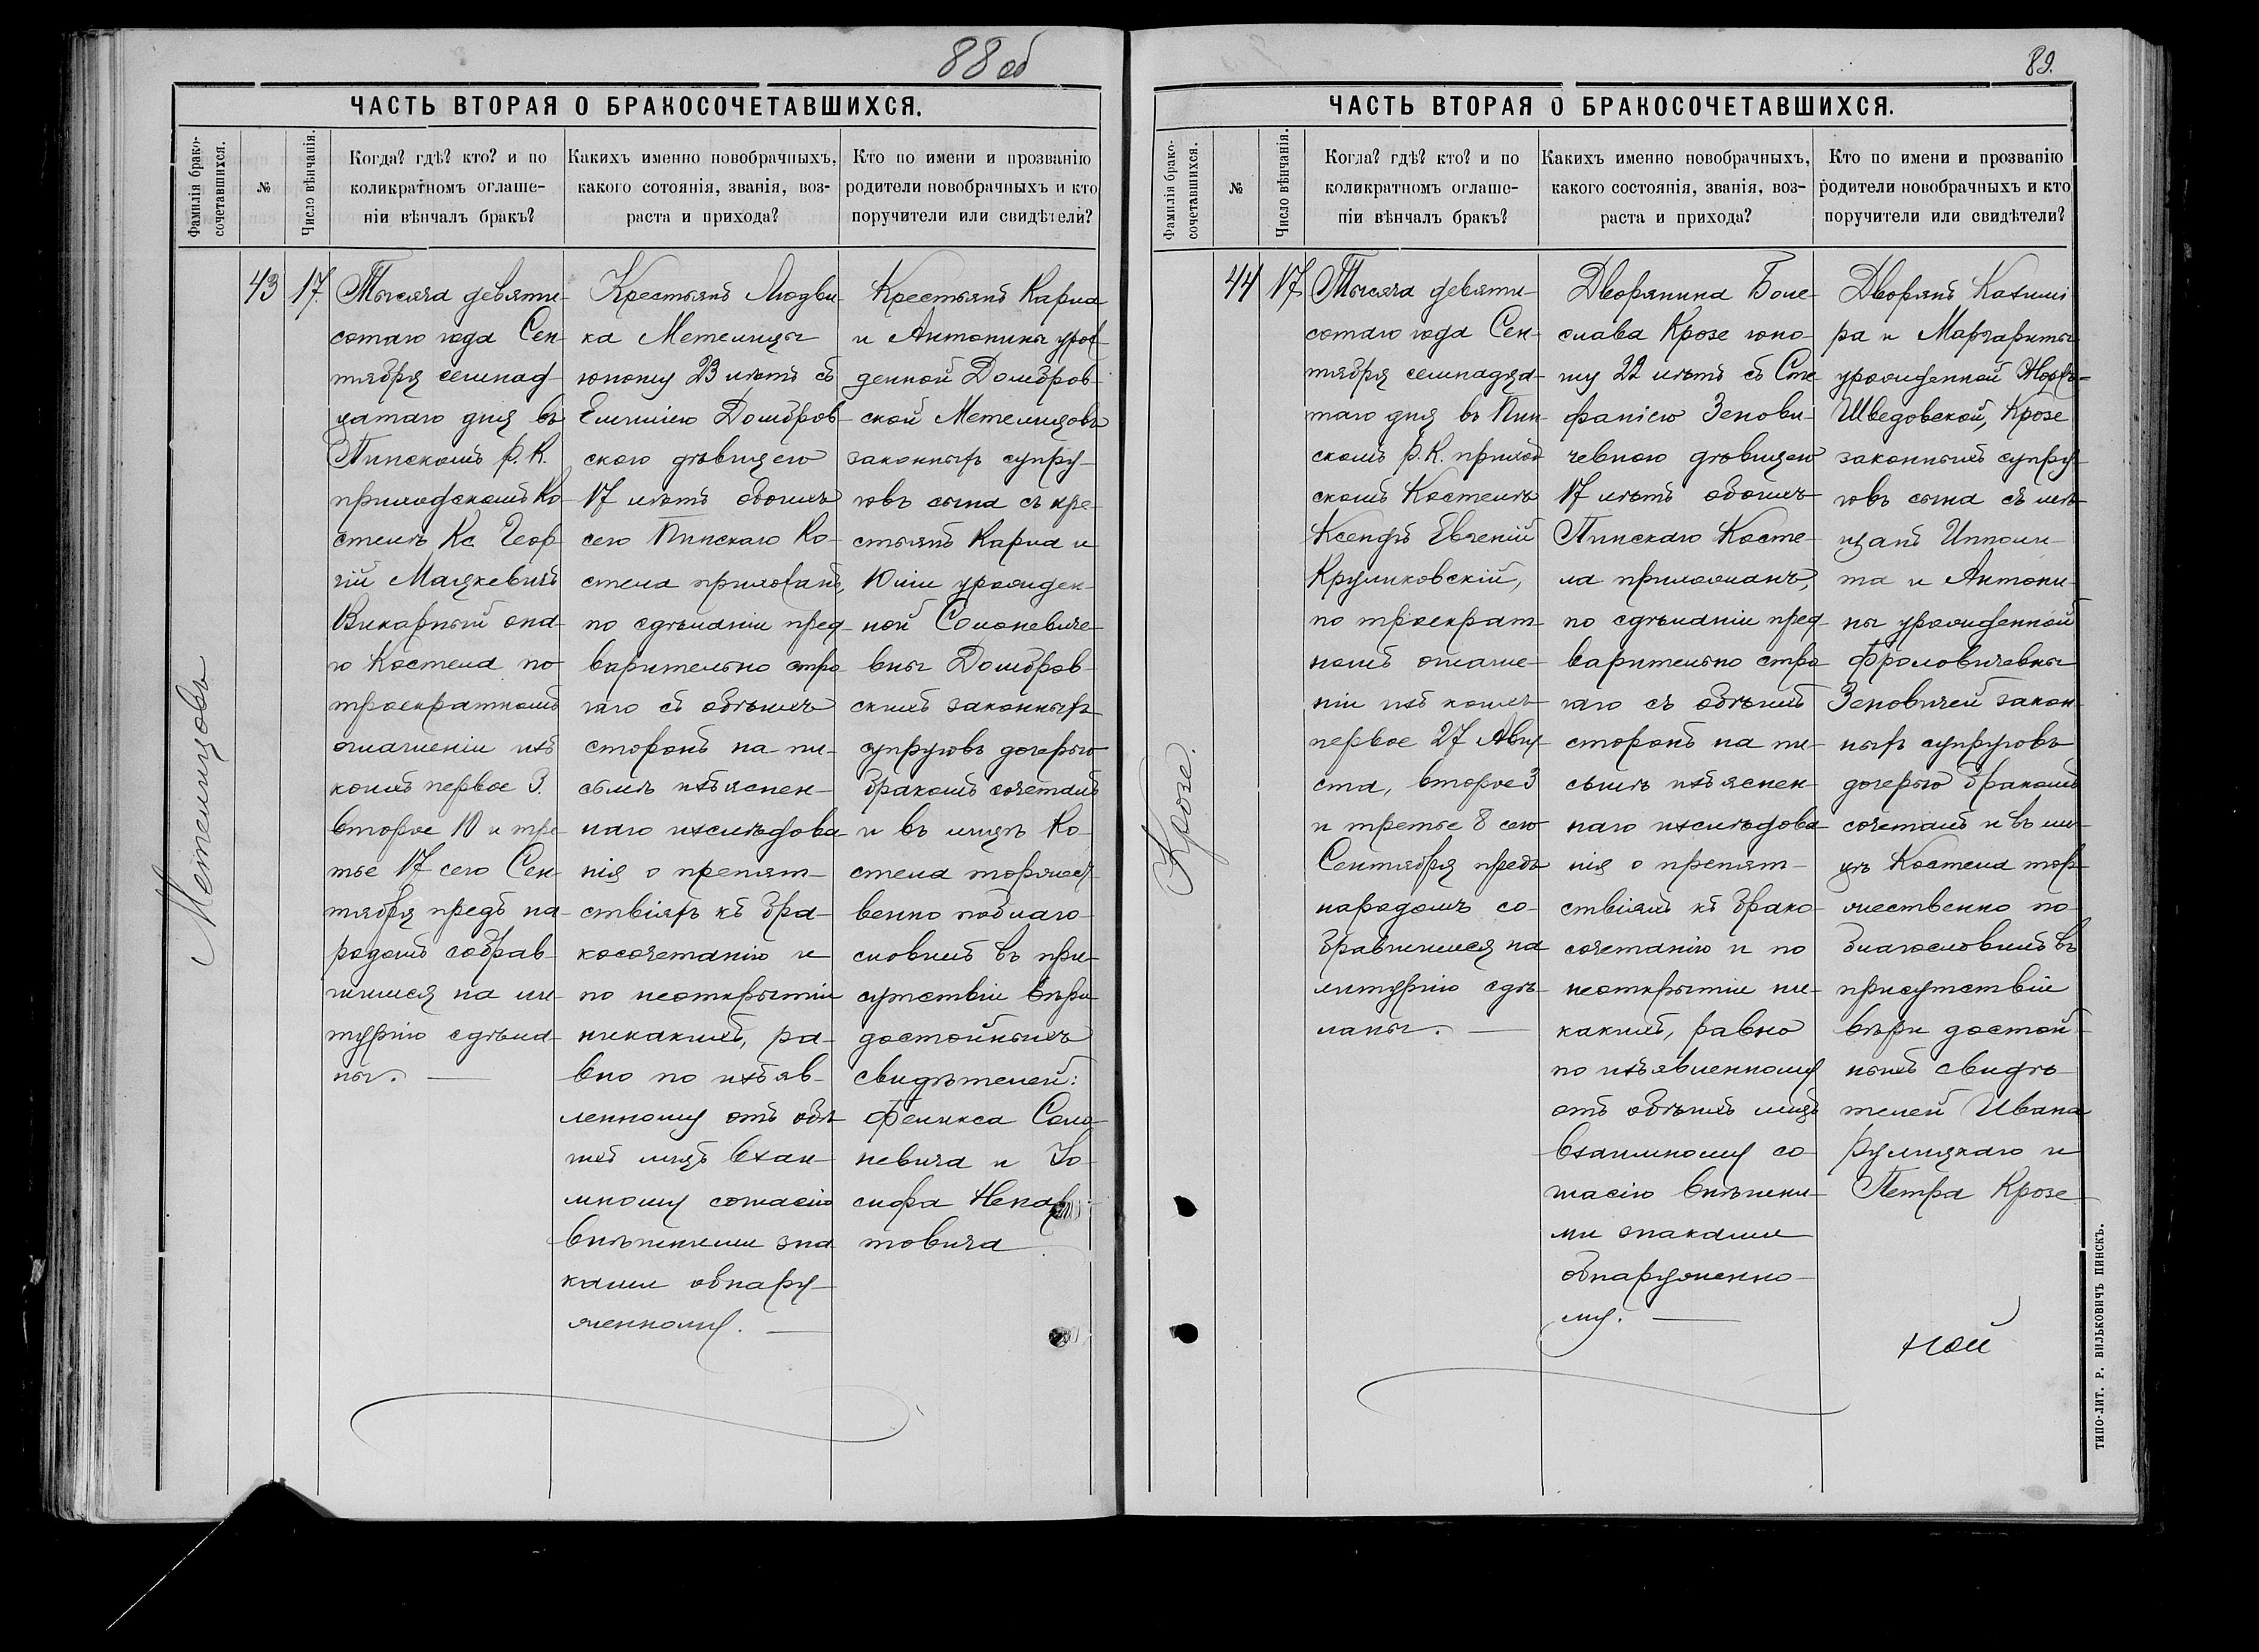 88 об
ЧАСТЬ ВТОРАЯ О БРАКОСОЧЕТАВШИХСЯ.
Фамилія брако-
сочетавшихся.
№
Число вѣнчанія.
Когда? гдѣ? кто? и по
коликратномъ оглаше-
ніи вѣнчалъ бракъ?
Какихъ именно новобрачныхъ,
какого сотоянія, званія, воз-
раста и прихода?
Кто по имени и прозванію
родители новобрачныхъ и кто
поручители или свидѣтели?
Метелицовъ
43
17.
Тысяча девяти-
сотаго года Сен-
тября семнад-
цатаго дня въ
Пинскомъ Р. К.
приходскомъ Ко-
стелѣ Кс. Геор-
гій Мацкевичъ
Викарный она-
го Костела по
троекратномъ
оглашеніи изъ
коихъ первое 3.
второе 10 и тре-
тье 17 сего Сен-
тября предъ на-
родомъ собрав-
шимся на ли-
тургію сдѣла-
ны. —
Крестьянъ Людви-
ка Метелицы
юношу 23 лѣтъ съ
Емилією Домбров-
скою дѣвицею
17 лѣтъ обоихъ
сего Пинскаго Ко-
стела прихожанъ,
по сдѣланіи пред-
варительно стро-
гаго съ обѣихъ
сторонъ на пи-
сьмѣ изъяснен-
наго изслѣдова-
нія о препят-
ствіяхъ къ бра-
косочетанію и
по неоткрытіи
никакихъ, ра-
вно по изъяв-
ленному отъ обѣ-
ихъ лицъ взаи-
мному согласію
внѣшними зна-
ками обнару-
женному. —
Крестьянъ Карла
и Антонины урож-
денной Домбров-
ской Метелицовъ
законныхъ супру-
говъ сына съ кре-
стьянъ Карла и
Юліи урожден-
ной Солоневиче-
вны Домбров-
скихъ законныхъ
супруговъ дочерью
бракомъ сочеталъ
и въ лицѣ Ко-
стела торжест-
венно поблаго-
словилъ въ при-
сутствіи вѣры
достойныхъ
свидѣтелей:
Феликса Соло-
невича и Іо-
сифа
товича
89.
ЧАСТЬ ВТОРАЯ О БРАКОСОЧЕТАВШИХСЯ.
Фамилія брако-
сочетавшихся.
№
Число вѣнчанія.
Когда? гдѣ? кто? и по
коликратномъ оглаше-
ніи вѣнчалъ бракъ?
Какихъ именно новобрачныхъ,
какого состоянія, званія, воз-
раста и прихода?
Кто по имени и прозванію
родители новобрачныхъ и кто
поручители или свидѣтели?
Крозе.
44
17.
Тысяча девяти-
сотаго года Сен-
тября семнадца-
таго дня въ Пин-
скомъ Р. К. приход-
скомъ Костелѣ
Ксендзъ Евгеній
Крумиковскій,
по троекрат-
номъ оглаше-
ніи изъ коихъ
первое 27 Авгу-
ста, второе 3
и третье 8 сего
Сентября предъ
народомъ со-
бравшимся на
литургію сдѣ-
ланы. —
Дворянина Боле-
слава Крозе юно-
шу 22 лѣтъ съ Сте-
фанією Зенови-
чевною дѣвицею
17 лѣтъ обоихъ
Пинскаго Косте-
ла прихожанъ,
по сдѣланіи пред-
варительно стро-
гаго съ обѣихъ
сторонъ на пи-
сьмѣ изъяснен-
наго изслѣдова-
нія о препят-
ствіяхъ къ брако-
сочетанію и по
неоткрытіи ни-
какихъ, равно
по изъявленному
отъ обѣихъ лицъ
взаимному со-
гласію внѣшни-
ми знаками
обнаруженно-
му. —
Дворянъ Казими-
ра и Маргариты
урожденной
Шведовской, Крозе
законныхъ супру-
говъ сына съ мѣ-
щанъ Ипполи-
та и Антони-
ны урожденной
Фроловичевны
Зеновичей закон-
ныхъ супруговъ
дочерью бракомъ
сочеталъ и въ ли-
цѣ Костела тор-
жественно по-
благословилъ въ
присутствіи
вѣры достой-
ныхъ свидѣ-
телей Ивана
Румицкаго и
Петра Крозе
ТИПО-ЛИТ. Р. ВИЛЬКОВИЧЪ ПИНСКЪ.